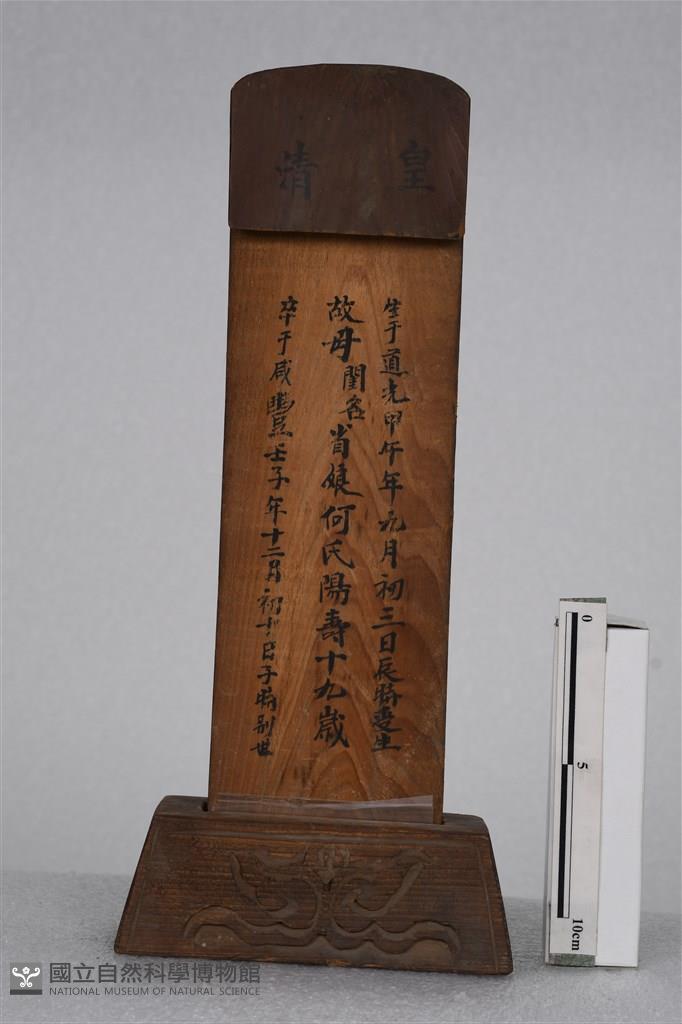 皇清
生于道光甲午年九月初三日辰時受生
故母閨名省娘何氏陽壽十九歲
卒于咸豐壬子年十二月初十日子時別世
0
5
10cm
國立自然科學博物館
NATIONAL MUSEUM OF NATURAL SCIENCE